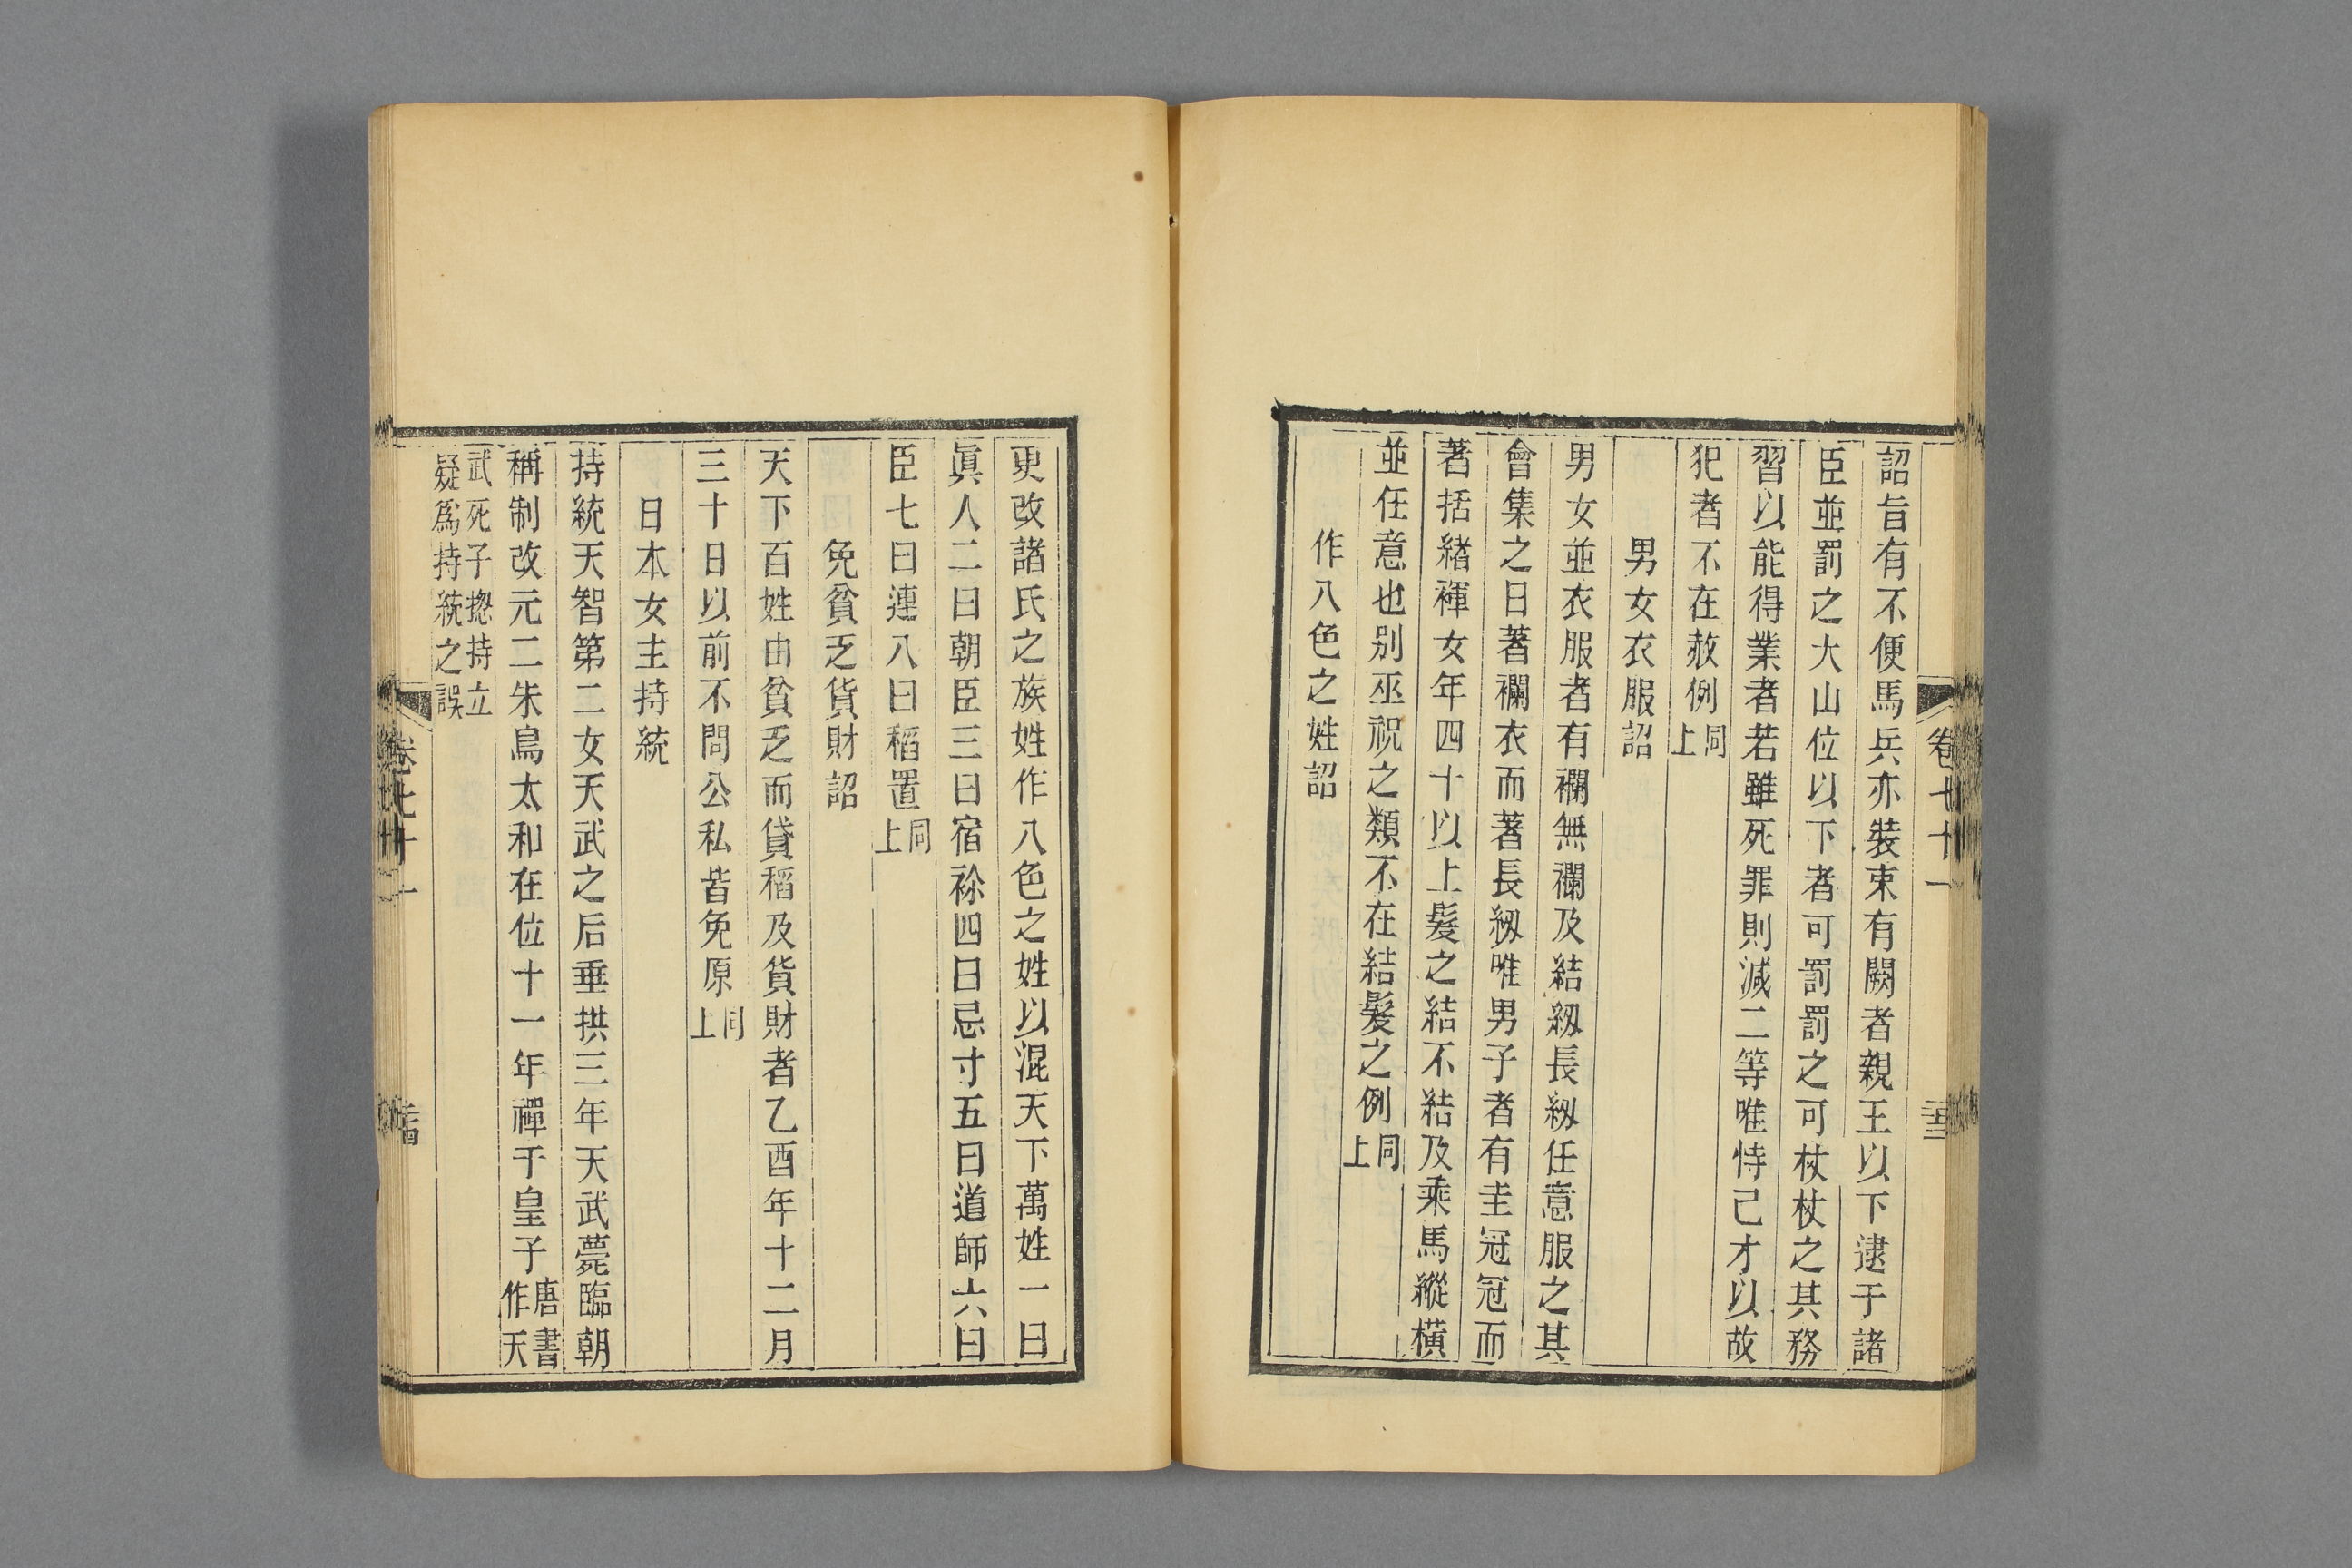 詔旨有不便馬兵亦裝束有闕者親王以下逮于諸
臣並罰之大山位以下者可罰罰之可杖杖之其務
習以能得業者若雖死罪則減二等唯恃己才以故
犯者不在赦例同上
男女衣服詔
男女並衣服者有襴無襴及結紐長紐任意服之其
會集之日著襴衣而著長紐唯男子者有圭冠冠而
著括緖褌女年四十以上髮之結不結及乘馬縱橫
並任意也别巫祝之類不在結髮之例同上
作八色之姓詔
卷七十一
更改諸氏之族姓作八色之姓以混天下萬姓一曰
眞人二曰朝臣三曰宿祢四曰忌寸五曰道師六曰
臣七曰連八曰稻置同上
免貧乏貨財詔
天下百姓由貧乏而貸稻及貨財者乙酉年十二月
三十日以前不問公私皆免原同上
日本女主持統
持統天智第二女天武之后垂拱三年天武薨臨朝
稱制改元二朱鳥太和在位十一年禪于皇子唐書
作天
武死子揔持立
疑爲持統之誤
卷七十一